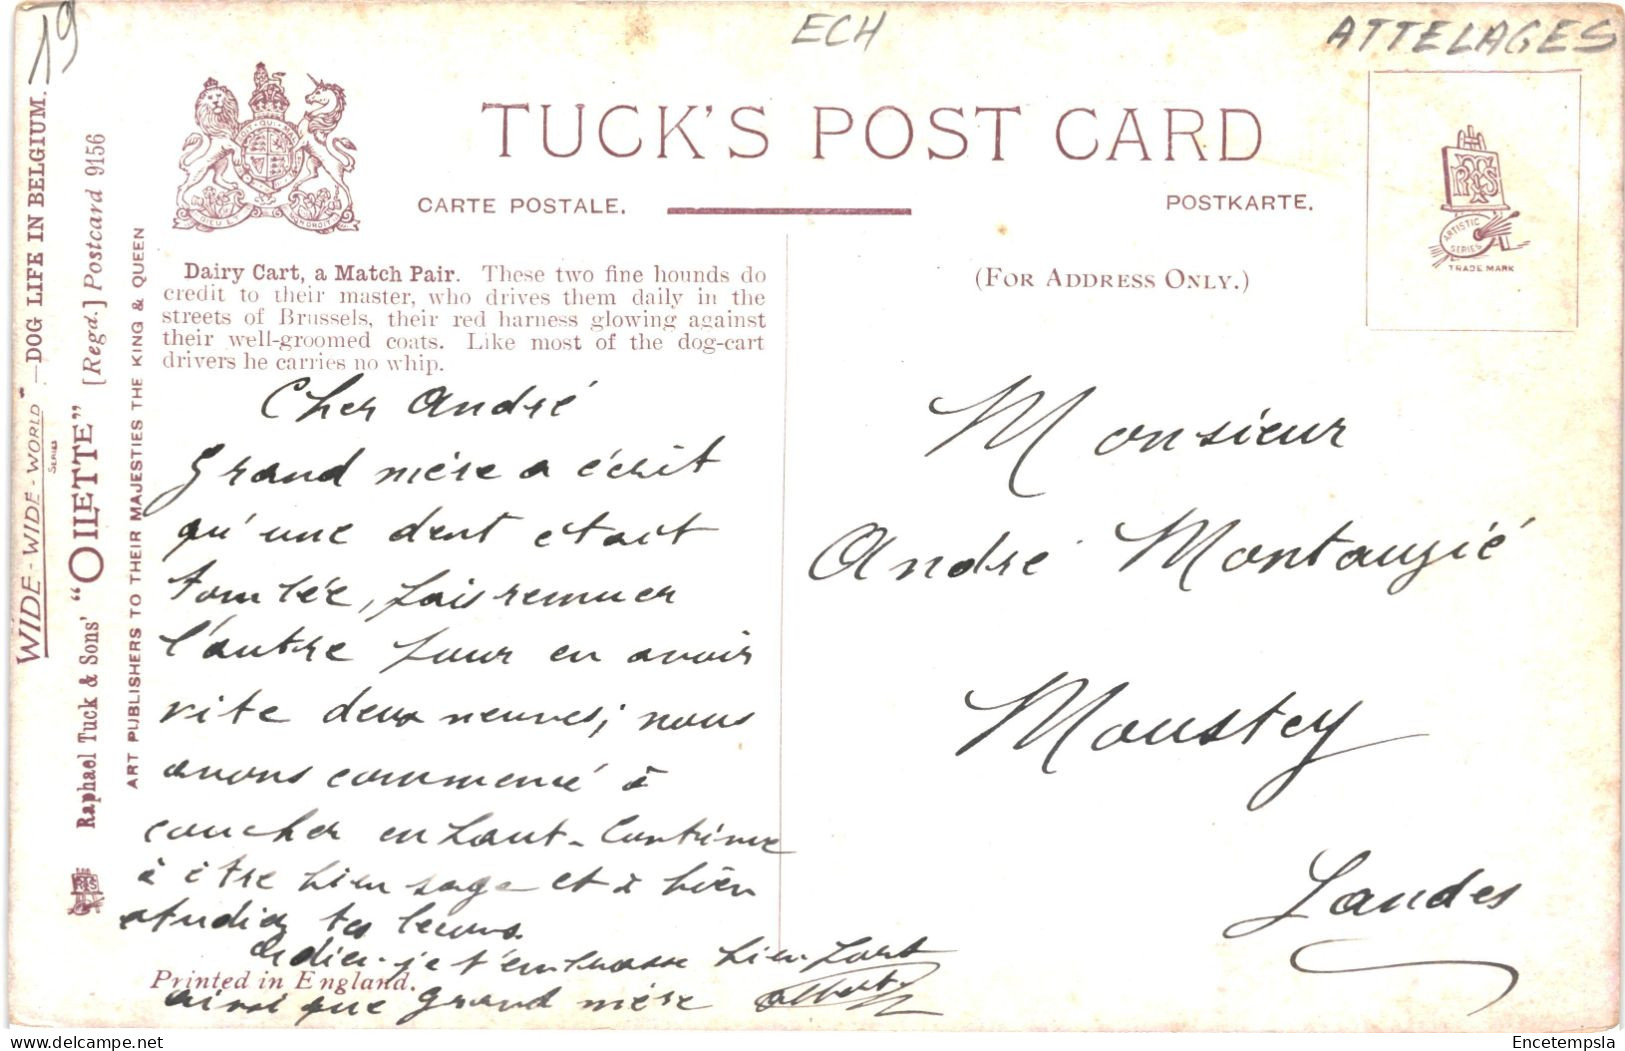 19
ECH
ATTELAGES
WIDE-WIDE-WORLD SERIES.—DOG LIFE IN BELGIUM.
Raphael Tuck & Sons' "OILETTE" [Regd.] Postcard 9156
ART PUBLISHERS TO THEIR MAJESTIES THE KING & QUEEN
TUCK'S POST CARD
CARTE POSTALE.
POSTKARTE.
ARTISTIC
SERIES
TRADE MARK
(FOR ADDRESS ONLY.)
Dairy Cart, a Match Pair. These two fine hounds do
credit to their master, who drives them daily in the
streets of Brussels, their red harness glowing against
their well-groomed coats. Like most of the dog-cart
drivers he carries no whip.
Cher André
Grand mère a écrit
qu'une dent etait
tombée, fais remuer
l'autre pour en avoir
vite deux neuves; nous
avons commencé à
coucher en haut - Continue
à être bien sage et à bien
etudier tes leçons.
Adieu - je t'embrasse bien fort
ainsi que grand mère Albert
Printed in England.
Monsieur
André Montauzié
Moustey
Landes
Encetempsla